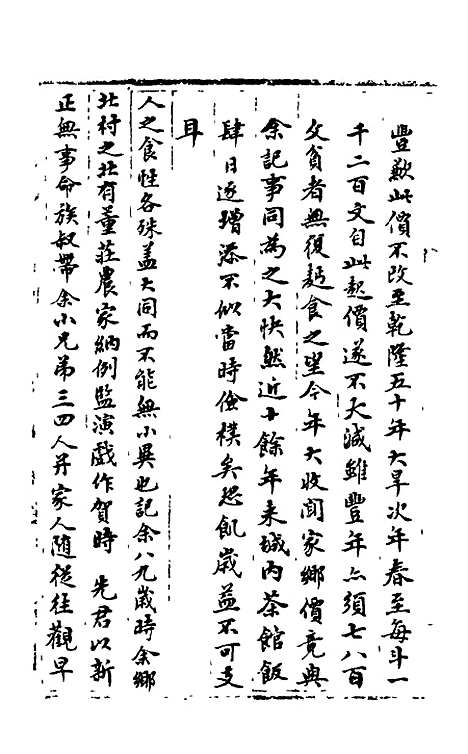 豐歉此價不改至乾隆五十年大旱次年春至每斗一
千二百文自此起價遂不大減雖豐年亦須七八百
文貧者無復麪食之望今年大收聞家鄉價竟與
余記事同為之大快然近十餘年來城內茶館飯
肆日逐增添不似當時儉樸矣恐飢歲益不可支
耳
人之食性各殊蓋大同而不能無小異也記余八九歲時余鄉
北村之北有董莊農家納例監演戲作賀時 先君以新
正無事命族叔帶余小兄弟三四人并家人隨從往觀早